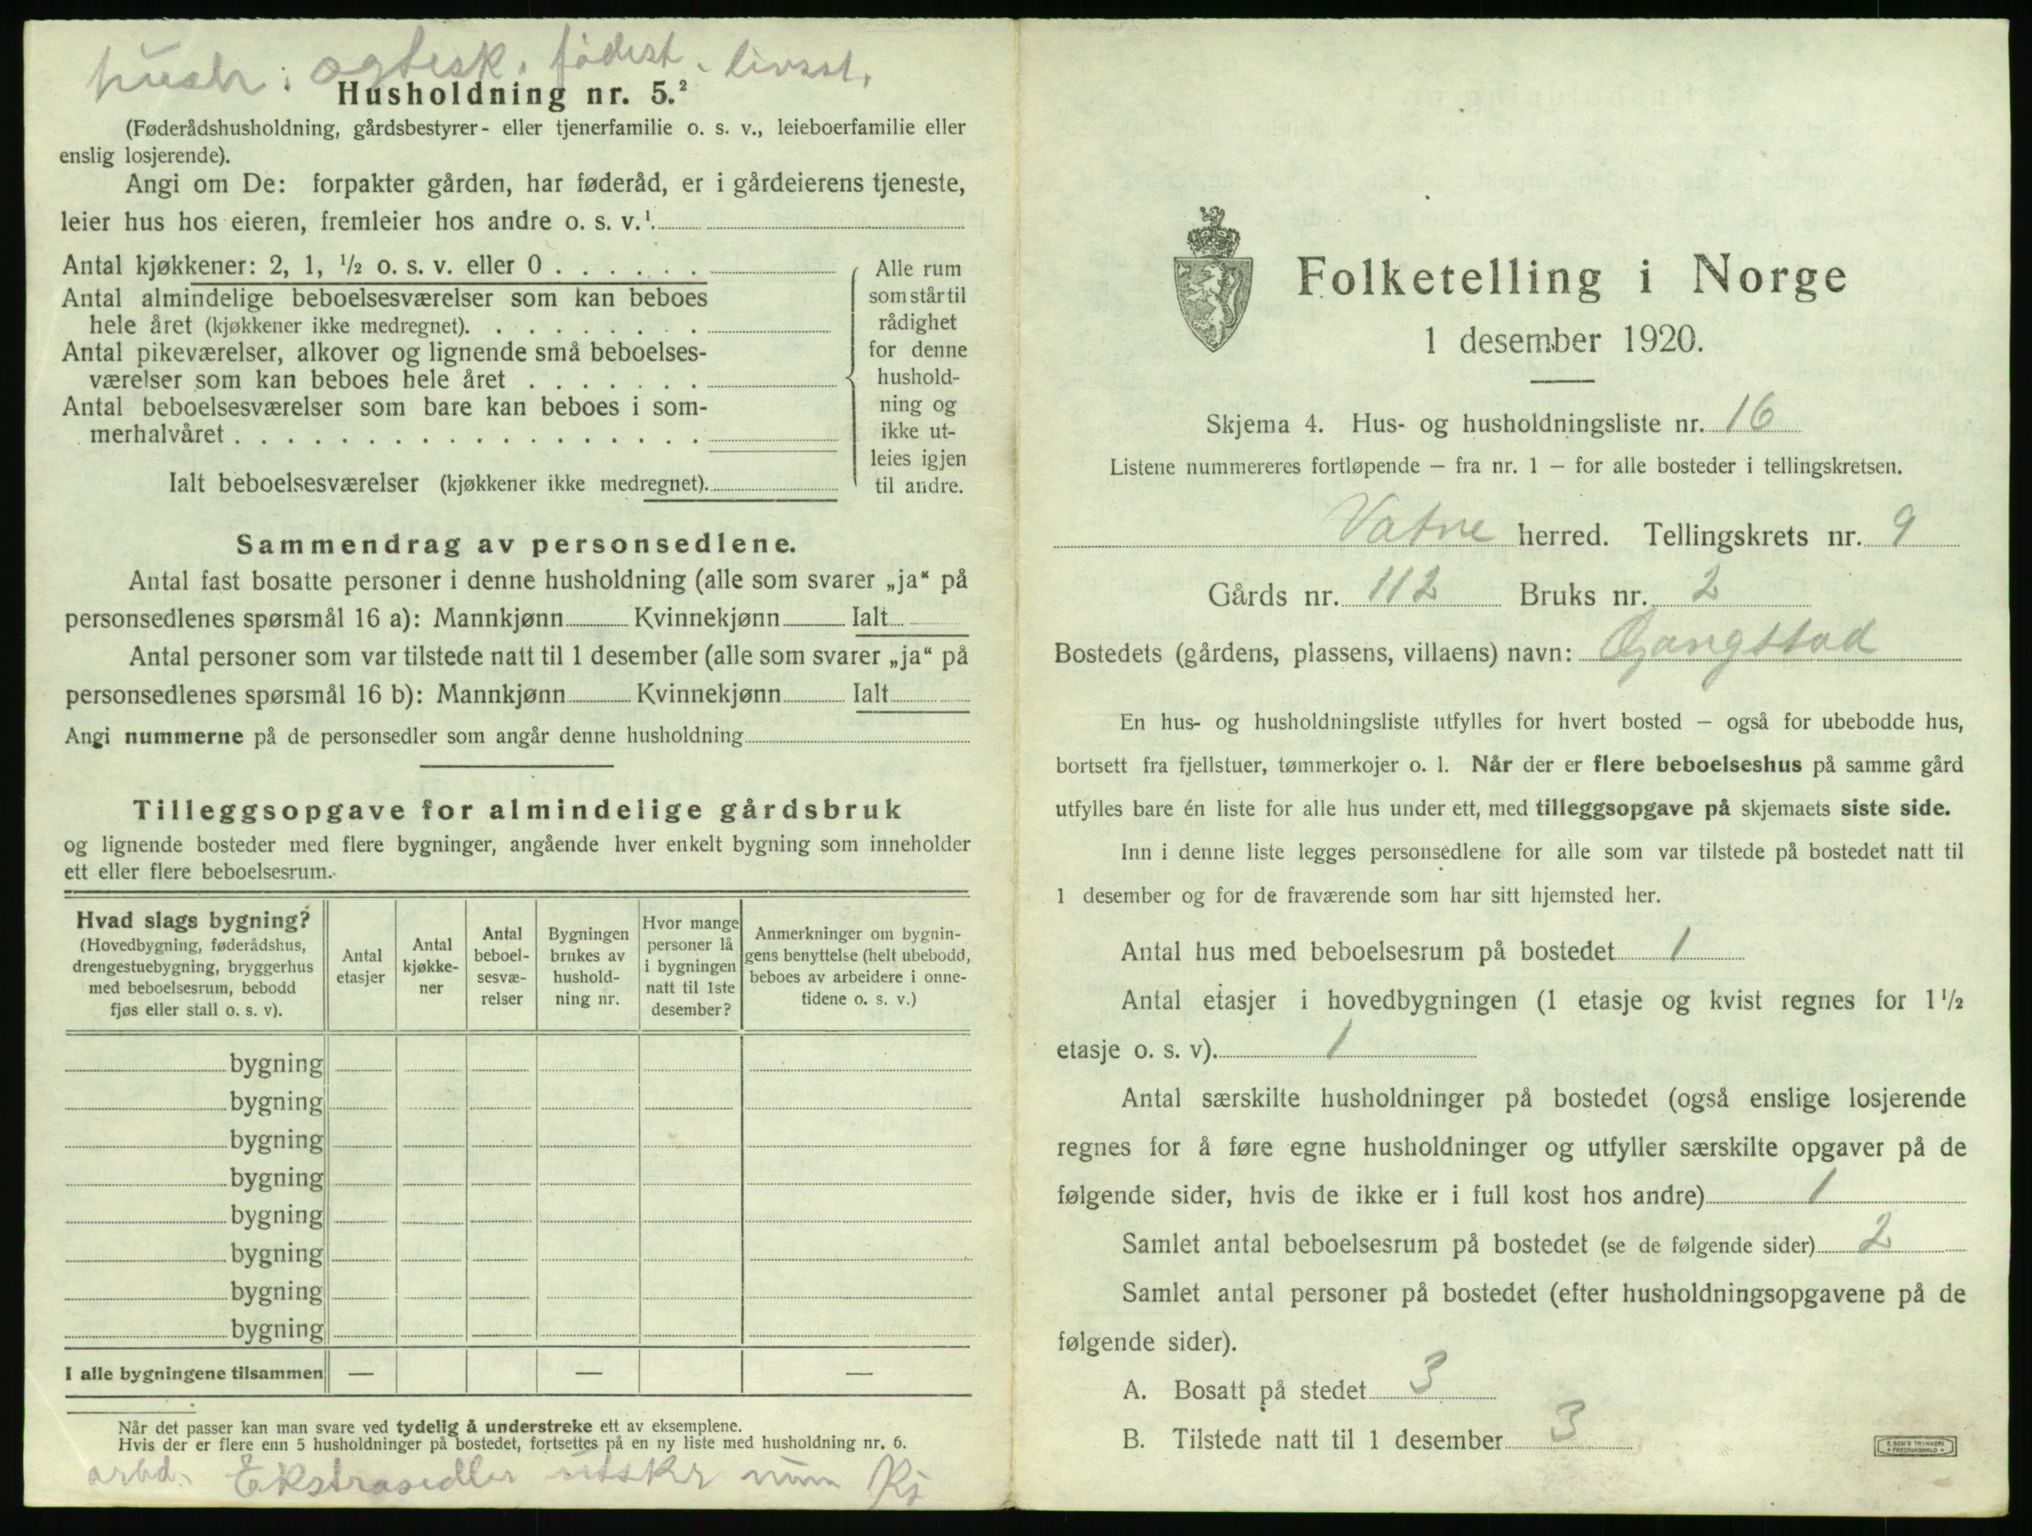 husbr. ogtesk. fødest. livsst.
Husholdning nr. 5.²
(Føderådshusholdning, gårdsbestyrer- eller tjenerfamilie o. s. v., leieboerfamilie eller
enslig losjerende).
Angi om De: forpakter gården, har føderåd, er i gårdeierens tjeneste,
leier hus hos eieren, fremleier hos andre o. s. v.¹
Antal kjøkkener: 2, 1, ½ o. s. v. eller 0 . . . . . .
Antal almindelige beboelsesværelser som kan beboes
hele året (kjøkkener ikke medregnet). . . . . . . . .
Antal pikeværelser, alkover og lignende små beboelses-
værelser som kan beboes hele året . . . . . . .
Antal beboelsesværelser som bare kan beboes i som-
merhalvåret . . . . . . . . . . . . . . . . . .
Ialt beboelsesværelser (kjøkkener ikke medregnet).
Alle rum
som står til
rådighet
for denne
hushold-
ning og
ikke ut-
leies igjen
til andre.
Sammendrag av personsedlene.
Antal fast bosatte personer i denne husholdning (alle som svarer „ja“ på
personsedlenes spørsmål 16 a): Mannkjønn Kvinnekjønn Ialt
Antal personer som var tilstede natt til 1 desember (alle som svarer „ja“ på
personsedlenes spørsmål 16 b): Mannkjønn Kvinnekjønn Ialt
Angi nummerne på de personsedler som angår denne husholdning
Tilleggsopgave for almindelige gårdsbruk
og lignende bosteder med flere bygninger, angående hver enkelt bygning som inneholder
ett eller flere beboelsesrum.
Hvad slags bygning?
(Hovedbygning, føderådshus,
drengestuebygning, bryggerhus
med beboelsesrum, bebodd
fjøs eller stall o. s. v).
Antal
etasjer
Antal
kjøkke-
ner
Antal
beboel-
sesvæ-
relser
Bygningen
brukes av
hushold-
ning nr.
Hvor mange
personer lå
i bygningen
natt til 1ste
desember?
Anmerkninger om bygnin-
gens benyttelse (helt ubebodd,
beboes av arbeidere i onne-
tidene o. s. v.)
bygning
bygning
bygning
bygning
bygning
bygning
bygning
bygning
I alle bygningene tilsammen — — —
Når det passer kan man svare ved tydelig å understreke ett av eksemplene.
Hvis der er flere enn 5 husholdninger på bostedet, fortsettes på en ny liste med husholdning nr. 6.
arbd. Ekstrasedler utskr num Kj
Folketelling i Norge
1 desember 1920.
Skjema 4. Hus- og husholdningsliste nr. 16
Listene nummereres fortløpende — fra nr. 1 — for alle bosteder i tellingskretsen.
Vatne herred. Tellingskrets nr. 9
Gårds nr. 112 Bruks nr. 2
Bostedets (gårdens, plassens, villaens) navn: Gangstad
En hus- og husholdningsliste utfylles for hvert bosted — også for ubebodde hus,
bortsett fra fjellstuer, tømmerkojer o. l. Når der er flere beboelseshus på samme gård
utfylles bare én liste for alle hus under ett, med tilleggsopgave på skjemaets siste side.
Inn i denne liste legges personsedlene for alle som var tilstede på bostedet natt til
1 desember og for de fraværende som har sitt hjemsted her.
Antal hus med beboelsesrum på bostedet 1
Antal etasjer i hovedbygningen (1 etasje og kvist regnes for 1 ½
etasje o. s. v). 1
Antal særskilte husholdninger på bostedet (også enslige losjerende
regnes for å føre egne husholdninger og utfyller særskilte opgaver på de
følgende sider, hvis de ikke er i full kost hos andre) 1
Samlet antal beboelsesrum på bostedet (se de følgende sider) 2
Samlet antal personer på bostedet (efter husholdningsopgavene på de
følgende sider).
A. Bosatt på stedet 3
B. Tilstede natt til 1 desember 3
E. SEM'S TRYKKERI
FREDRIKSHALD